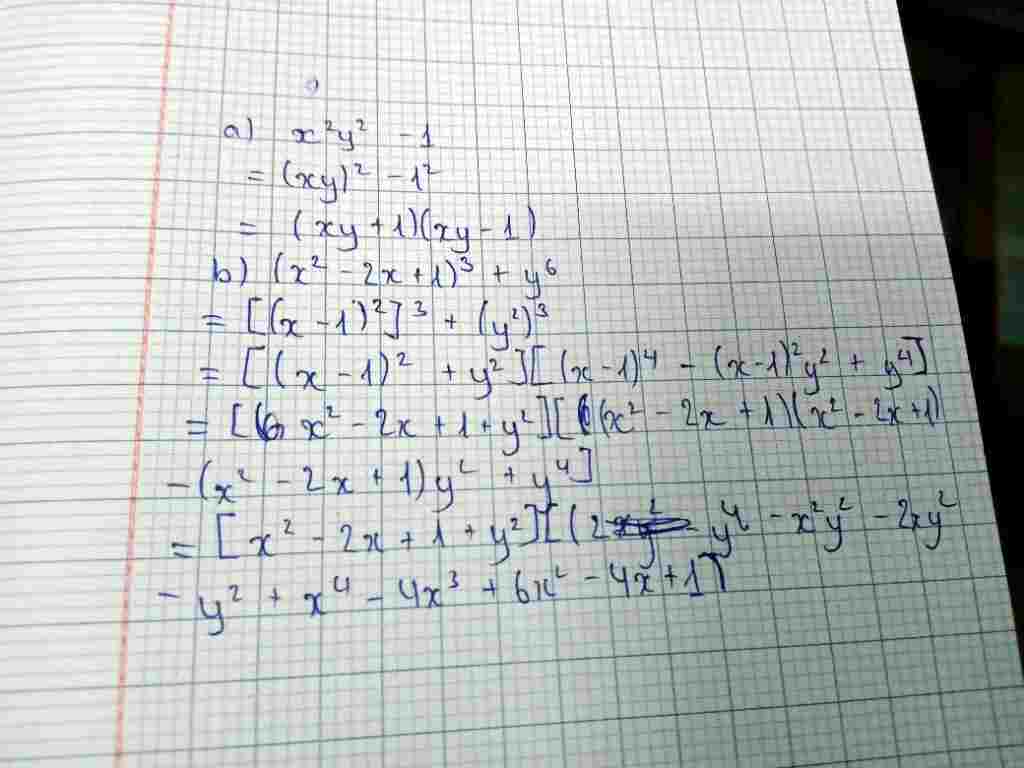 a) x²y² - 1
= (xy)² - 1²
= (xy + 1)(xy - 1)
b) (x² - 2x + 1)³ + y⁶
= [(x - 1)²]³ + (y²)³
= [(x - 1)² + y²][(x - 1)⁴ - (x-1)²y² + y⁴]
= [x² - 2x + 1 + y²][(x² - 2x + 1)(x² - 2x + 1)
- (x² - 2x + 1)y² + y⁴]
= [x² - 2x + 1 + y²][(2 y⁴ - x²y² - 2xy²
- y² + x⁴ - 4x³ + 6x² - 4x + 1]